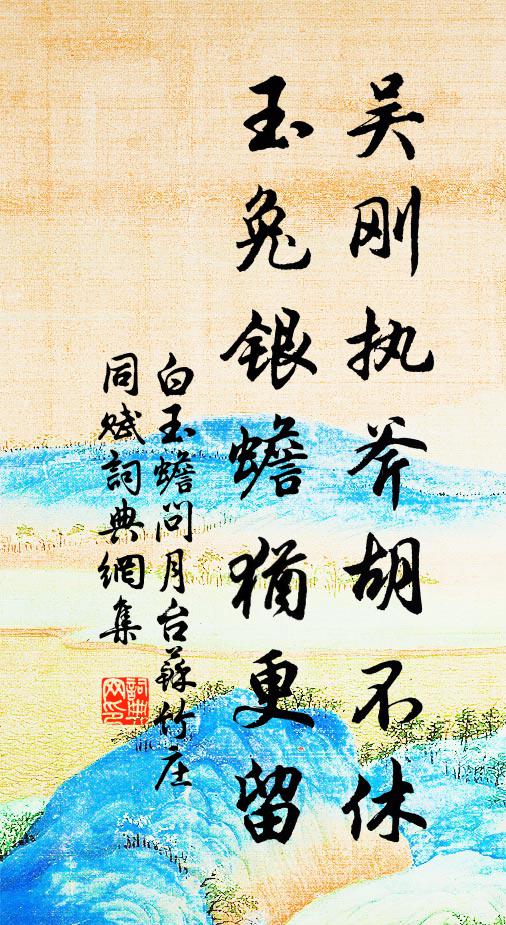 吴刚执斧胡不休
玉兔银蟾犹更留
白玉蟾问月台蘇竹庄
同赋詞典網集